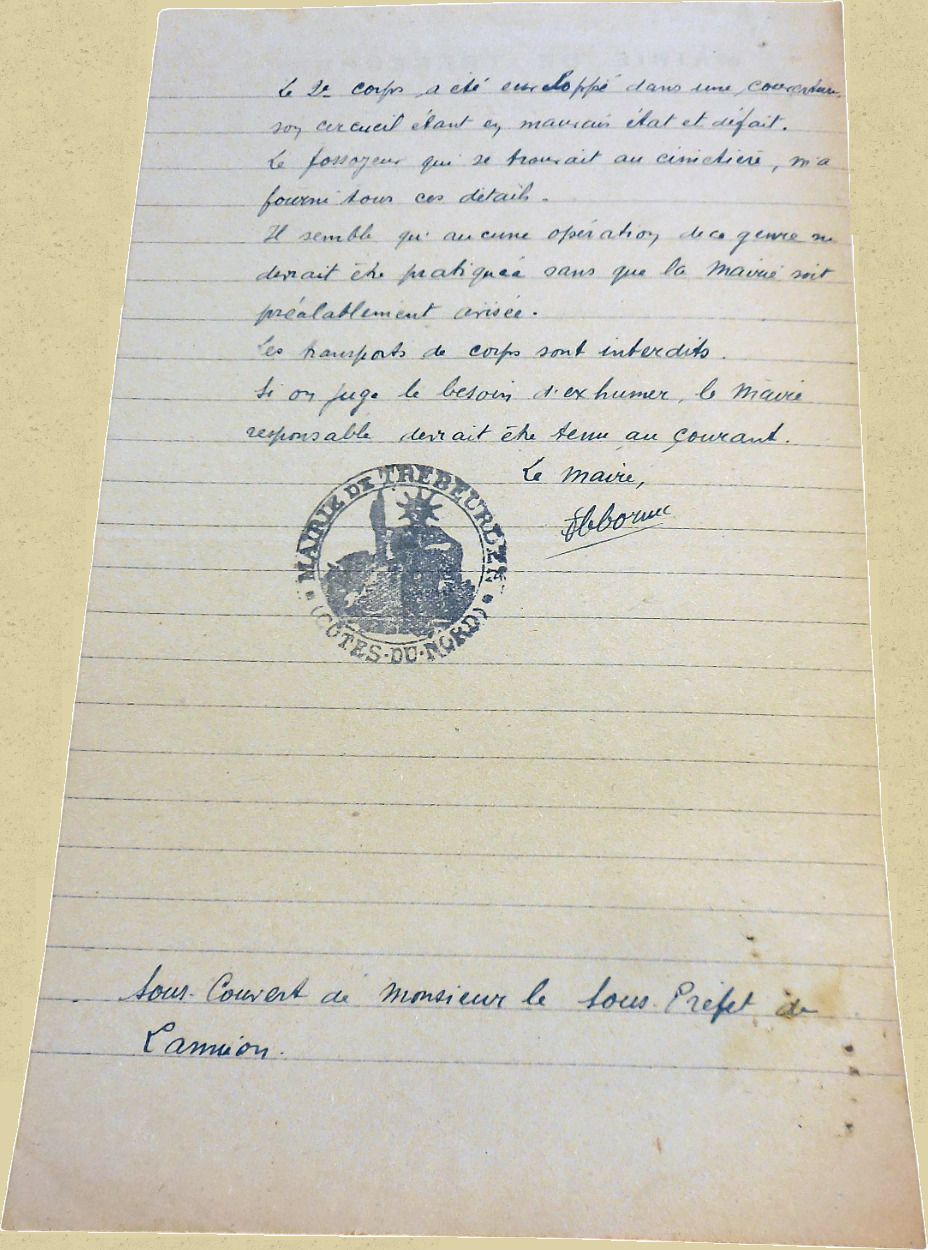 Le 2e corps a été enveloppé dans une couverture,
son cercueil étant en mauvais état et défait.
Le fossoyeur qui se trouvait au cimetière, m'a
fourni tous ces détails.
Il semble qu'aucune opération de ce genre ne
devrait être pratiquée sans que la Mairie soit
préalablement avisée.
Les transports de corps sont interdits.
Si on juge le besoin d'exhumer, le Maire
responsable devrait être tenu au courant.
Le Maire,
MAIRIE DE TREBEURDEN
(COTES-DU-NORD)
Sous-Couvert de Monsieur le Sous-Préfet de
Lannion.